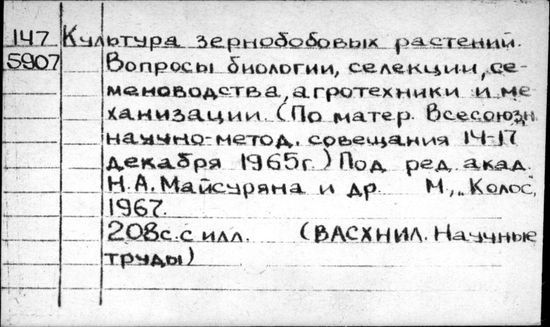 147 Культура зернобобовых растений.
5907 Вопросы биологии, селекции, се-
меноводства, агротехники и ме
ханизации. (По матер. Всесоюзн.
научно-метод. совещания 14-17
декабря 1965г.) Под ред. акад.
Н.А. Майсуряна и др. М., „Колос,
1967.
208с. с илл. (ВАСХНИЛ. Научные
труды)